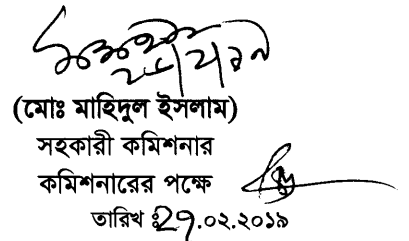 (মোঃ মাহিদুল ইসলাম)
সহকারী কমিশনার
কমিশনারের পক্ষে
তারিখ ঃ২৭.০২.২০১৯